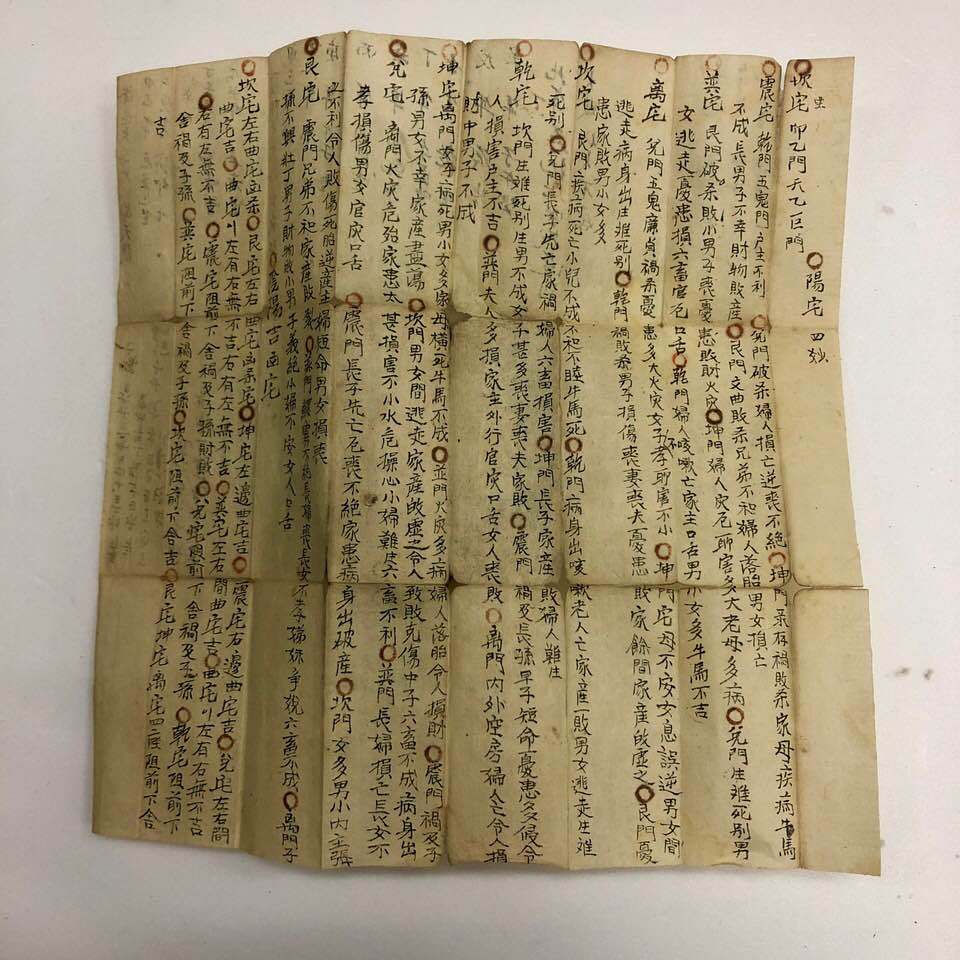 陽宅 四妙
坎宅 生 卯乙門天乙巨門
震宅 乾門五鬼門户生不利 兌門破杀婦人損亡逆喪不絶 坤門 禍敗杀家母疾病牛馬
不成長男子不幸財物敗産 艮門文曲敗杀兄弟不和婦人落胎男女損亡
巽宅 艮門破杀敗小男子喪憂患敗財火灾 坤門婦人灾厄 害多大老母多病 兌門生难死別男
女逃走憂患損六畜官厄口舌 乾門婦人咳嗽亡家主口舌男 小女多牛馬不吉
离宅 兌門五鬼廉貞禍系憂患多大火灾女子不孝 害不小 坤門宅母不安女息誤逆男女間
逃走病身出生难死別 乾門禍敗杀男子損傷喪妻喪夫憂患敗家餘間家産敗虚之 艮門憂
患家敗男小女多
坎宅 艮門疾病死亡小兒不成不和不睦牛馬死 乾門病身出咳嗽老人亡家産一敗男女逃走生难
死別 兌門長子先亡家禍婦人六畜損害 坤門長子家産敗婦人難生
乾宅 坎門生难死別生男不成女子甚多喪妻喪夫家敗 震門禍及長孫早子短命憂患多假令
人損害户主不吉 巽門夫人多損家主外行官灾口舌女人喪敗 离門内外空房婦人亡令人損
財中男子不成
坤宅 离門女子病死男小女多家母横死牛馬不成 並門火灾多病婦人落胎令人損財 震門禍及子
孫男女不幸家産盡蕩 坎門男女間逃走家産敗虚之令人致敗克傷中子六畜不成病身出
兌宅 离門火灾危殆家患太甚損害不小水危操心小婦難 六畜不利 巽門長婦損亡長女不
孝損傷男女官灾口舌 震門長子先亡厄喪不絶家患病身出破産 坎門女多男小内主張
不利令人敗傷死胎逆産主婦短命男女損喪
艮宅 震門兄弟不和家産敗 巽門 長婦喪長女不孝 爭競六畜不成 离門子
孫不興壮丁男子財物敗小男子義絶小婦不安女人口舌
陰陽吉凶宅
坎宅左右曲宅凶杀 艮宅左右曲宅凶杀宅 坤宅左邊曲宅吉 震宅右邊曲宅吉 兌宅左右間
曲宅吉 曲宅以左有右無不吉右有左無不吉 巽宅左右間曲宅吉 曲宅以左有右無不吉
右有左無不吉 震宅阻前下舍禍及子孫財敗 兌宅 前下舍禍及子孫 乾宅阻前下
舍禍及子孫 巽宅阻前下舍禍及子孫 坎宅阻前下舍吉 艮宅坤宅离宅四 阻前下舍
吉